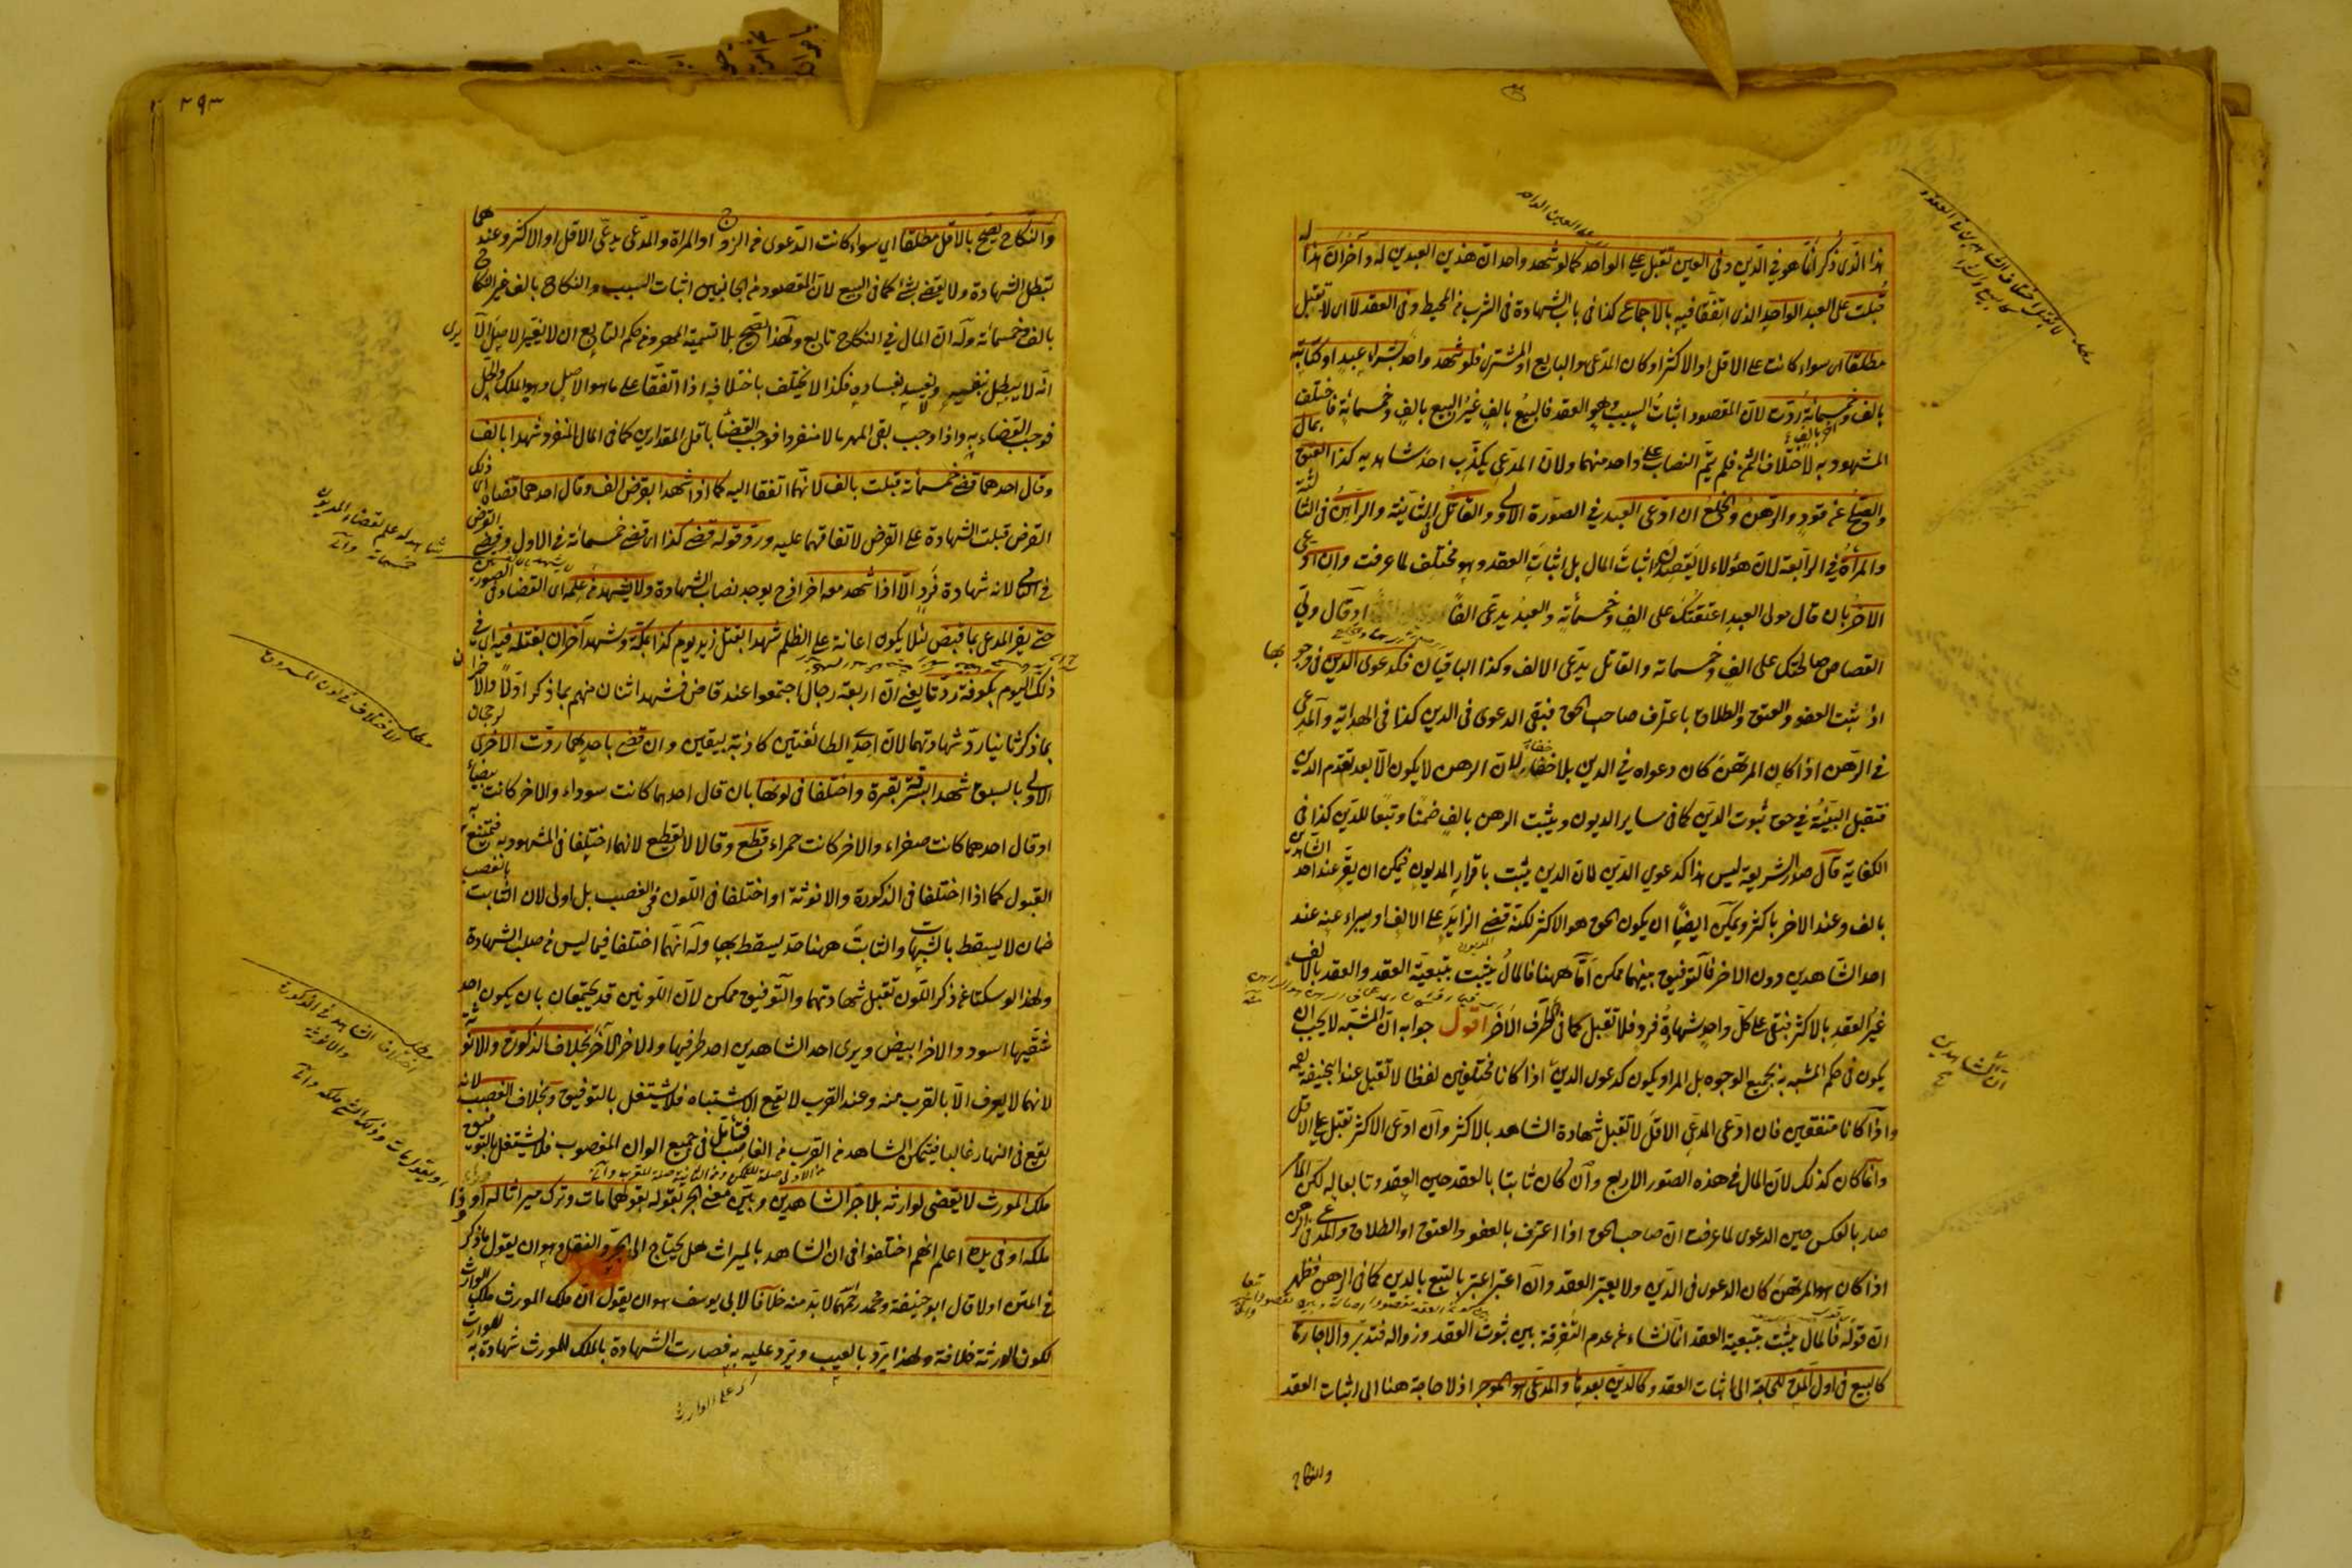 هذا الذي ذكر انما هو في الدين وفي العين تقبل على الواحد كما لو شهد واحد ان هذين العبدين له وآخر ان هذا له
قبلت على العبد الواحد الذي اتفقا فيه بالاجماع كذا في باب الشهادة في الشرب من المحيط وفي العقد لا اى لا تقبل
مطلقا اى سواء كانت على الاقل او الاكثر او كان المدعى هو البايع او المشترى فلو شهد واحد بشراء عبد او كتابته
بالف وخمسمائة ردت لان المقصود اثبات السبب وهو العقد فالبيع بالف غير البيع بالف وخمسمائة فاختلف
المشهود به لاختلاف الثمن فلم يتم النصاب على واحد منهما ولان المدعى يكذب احد شاهديه كذا العتق بمال
والصلح عن قود والرهن والخلع ان ادعى العبد في الصورة الاولى والقاتل في الثانية والراهن في الثالثة
والمرأة في الرابعة لان هؤلاء لا يقصدون اثبات المال بل اثبات العقد وهو مختلف لما عرفت وان ادعى
الآخر بان قال مولى العبد اعتقتك على الف وخمسمائة والعبد يدعى الفا او قال ولى
القصاص صالحتك على الف وخمسمائة والقاتل يدعى الالف وكذا الباقيان فكدعوى الدين في وجوهها
اذ ثبت العفو والعتق والطلاق باعتراف صاحب الحق فبقى الدعوى في الدين كذا في الهداية والمدعى
في الرهن اذا كان المرتهن كان دعواه في الدين بلا خفاء لان الرهن لا يكون الا بعد تقدم الدين
فتقبل البينة في حق ثبوت الدين كما في ساير الديون ويثبت الرهن بالف ضمنا وتبعا للدين كذا في
الكفاية قال صدر الشريعة ليس هذا كدعوى الدين لان الدين يثبت باقرار المديون فيمكن ان يقر عند احد الشاهدين
بالف وعند الاخر باكثر ويمكن ايضا ان يكون الحق هو الاكثر لكنه قضى الزايد على الالف او يبراء عنه عند
احد الشاهدين دون الاخر فالتوفيق بينهما ممكن اما ههنا فالمال يثبت بتبعية العقد والعقد بالالف
غير العقد بالاكثر فبقى على كل واحد شهادة فرد فلا تقبل كما في الطرف الاخر اقول جوابه ان المشبه لا يجب ان
يكون في حكم المشبه به بجميع الوجوه بل المراد يكون كدعوى الدين اذا كانا مختلفين لفظا لا تقبل عند ابي حنيفة
واذا كانا متفقين فان ادعى المدعى الاقل لا تقبل شهادة الشاهد بالاكثر وان ادعى الاكثر تقبل على الاقل
وانما كان كذلك لان المال في هذه الصور الاربع وان كان ثابتا بالعقد حين العقد وتابعا له لكن الامر
صار بالعكس حين الدعوى لما عرفت ان صاحب الحق اذا اعترف بالعفو والعتق او الطلاق والمدعى في الرهن
اذا كان هو المرتهن كان الدعوى في الدين ولا يعتبر العقد وان اعتبر اعتبر بالتبع بالدين كما في الرهن فظهر
ان قوله فالمال يثبت بتبعية العقد انما نشاء عن عدم التفرقة بين ثبوت العقد وزواله فتدبر والاجارة
كالبيع في اول المدة للحاجة الى اثبات العقد وكالدين بعدها والمدعى هو الموجر اذ لا حاجة هنا الى اثبات العقد
والنكاح
٢٩٣
والنكاح يصح بالاقل مطلقا اي سواء كانت الدعوى من الزوج او المراة والمدعى يدعى الاقل او الاكثر وعندهما
تبطل الشهادة ولا يقضى بشئ كما في البيع لان المقصود من الجانبين اثبات السبب والنكاح بالف غير النكاح
بالف وخمسمائة وله ان المال في النكاح تابع ولهذا يصح بلا تسمية المهر ومن حكم التابع ان لا يغير الاصل الا يرى
انه لا يبطل بنفيه ولا يفسد بفساده فكذا لا يختلف باختلافه اذا اتفقا على ما هو الاصل وهو الملك والحل
فوجب القضاء به واذا وجب بقى المهر مالا منفردا فوجب القضأ باقل المقدارين كما في المال المنفرد شهدا بالف
وقال احدهما قضى خمسمائة قبلت بالف لانهما اتفقا اليه كما اذا شهدا بقرض الف وقال احدهما قضاه ذلك اى
القرض قبلت الشهادة على القرض لاتفاقهما عليه ورد قوله قضى كذا اى قضى خمسمائة في الاول وقضى القرض
في الثاني لانه شهادة فرد الا اذا شهد معه اخر اذ ح يوجد نصاب الشهادة ولا يشهد من علمه اى القضاء في الصورتين
حتى يقر المدعى بما قبض لئلا يكون اعانة على الظلم شهدا بقتل زيد يوم كذا بمكة وشهد آخران بقتله فيه اى في
ذلك اليوم بكوفة ردتا يعني ان اربعة رجال اجتمعوا عند قاض فشهد اثنان منهم بما ذكر اولا والآخران
بما ذكر ثانيا رد شهادتهما لان احدى الطائفتين كاذبة بيقين وان قضى باحديهما ردت الاخرى لرجحان
الاولى بالسبق شهدا بسرقة بقرة واختلفا في لونها بان قال احدهما كانت سوداء والاخر كانت بيضاء
او قال احدهما كانت صفراء والاخر كانت حمراء قطع وقالا لا يقطع لانهما اختلفا في المشهود به فيمتنع
القبول كما اذا اختلفا في الذكورة والانوثة او اختلفا في اللون في الغصب بل اولى لان الثابت بالغصب
ضمان لا يسقط بالشبهات والثابت ههنا حد يسقط بها وله انهما اختلفا فيما ليس في صلب الشهادة
ولهذا لو سكتا عن ذكر اللون تقبل شهادتهما والتوفيق ممكن لان اللونين قد يجتمعان بان يكون احد
شقيها اسود والاخر ابيض ويرى احد الشاهدين احد طرفيها والاخر الآخر بخلاف الذكورة والانوثة
لانهما لا يعرف الا بالقرب منه وعند القرب لا يقع الاشتباه فلا يشتغل بالتوفيق وبخلاف الغصب لانه
يقع في النهار غالبا فيتمكن الشاهد من القرب من الغاصب فيتأمل في جميع الوان المغصوب فلا يشتغل بالتوفيق
ملك المورث لا يقضى لوارثه بلا جر الشاهدين وبين معنى الجر بقوله بقولهما مات وترك ميراثا له او وذا
ملكه او في يده اعلم انهم اختلفوا في ان الشاهد بالميراث هل يحتاج الى الجر والنقل وهو ان يقول ما ذكر
في المتن اولا قال ابو حنيفة ومحمد رحمهما لا بد منه خلافا لابي يوسف هو ان يقول ان ملك المورث ملك الوارث
لكون الورثة خلافة ولهذا يرد بالعيب ويرد عليه به فصارت الشهادة بالملك للمورث شهادة به للوارث